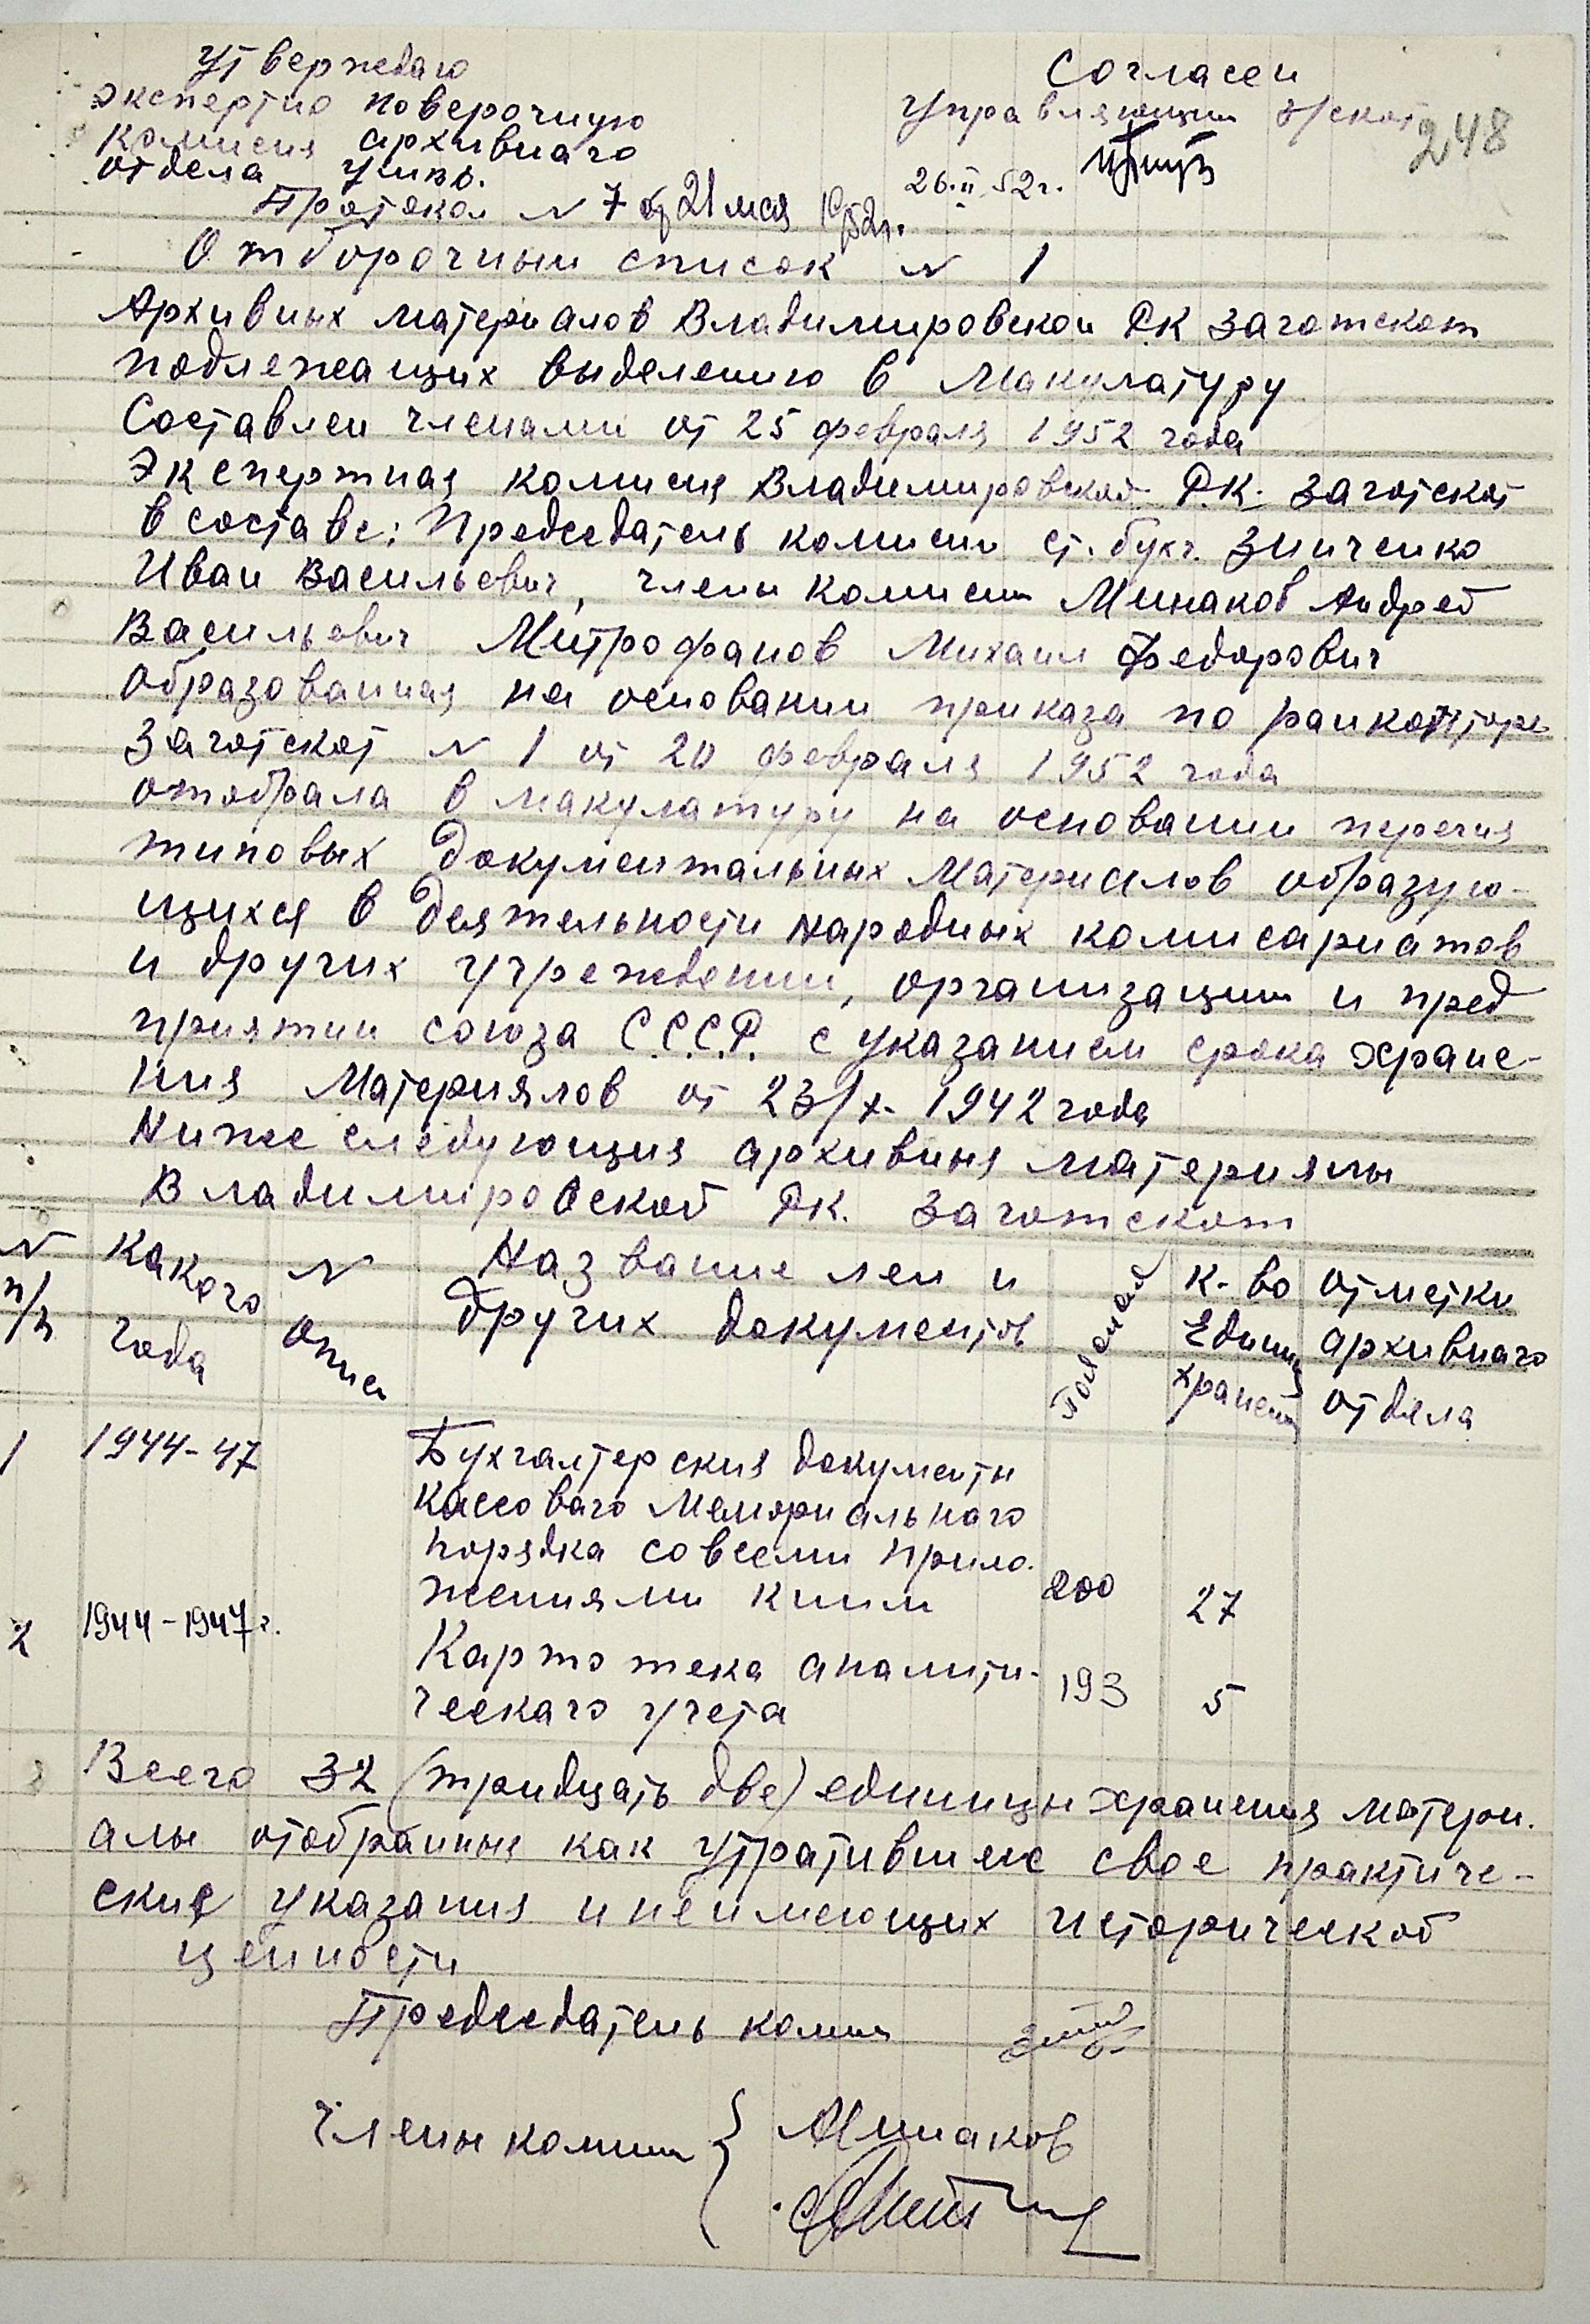 Утверждаю
экспертно поверочную
комисия архивнаго
отдела умвд.
Протокол № 7 от 21 мая 1952г.
Согласен
Управляющии з/скот
248
26.II.52г.
Отборочныи список № 1
Архивных материалов Владимировскои Р.К Заготскот
подлежащих выделению в макулатуру
Составлен членами от 25 февраля 1952 года
Экспертная комисия Владимировской Р.К. Заготскот
в составе: Председатель комисии ст. бухг. Зинченко
Иван Васильевич, члены комисии Минаков Андрей
Васильевич Митрофанов Михаил Федорович
образованная на основании приказа по раиконторе
Заготскот № 1 от 20 февраля 1952 года
отобрала в макулатуру на основании перечня
типовых документальных материалов образую-
щихся в деятельности народных комисариатов
и других учреждении, организации и пред
приятии союза С.С.С.Р. с указанием срока хране-
ния материялов от 23/х- 1942 года
Нижеследующия архивныя материялы
Владимировской Р.К. Заготскот
№ п/п
какого года
№ описи
Название лен и других документов
К-во Едини хранени
отметки архивнаго отдела
1 1944-47 Бухгалтерския документы
кассоваго мемориальнаго
порядка совсеми прило-
жениями кним 200 27
2 1944-1947г. Картотека аналити-
ческаго учета 193 5
Всего 32 (тридцать две) единицы хранения матери-
алы отобранные как утратившие свое практиче-
ские указания и неимеющих исторической
ценности
Председатель комии
Члены комии { Минаков